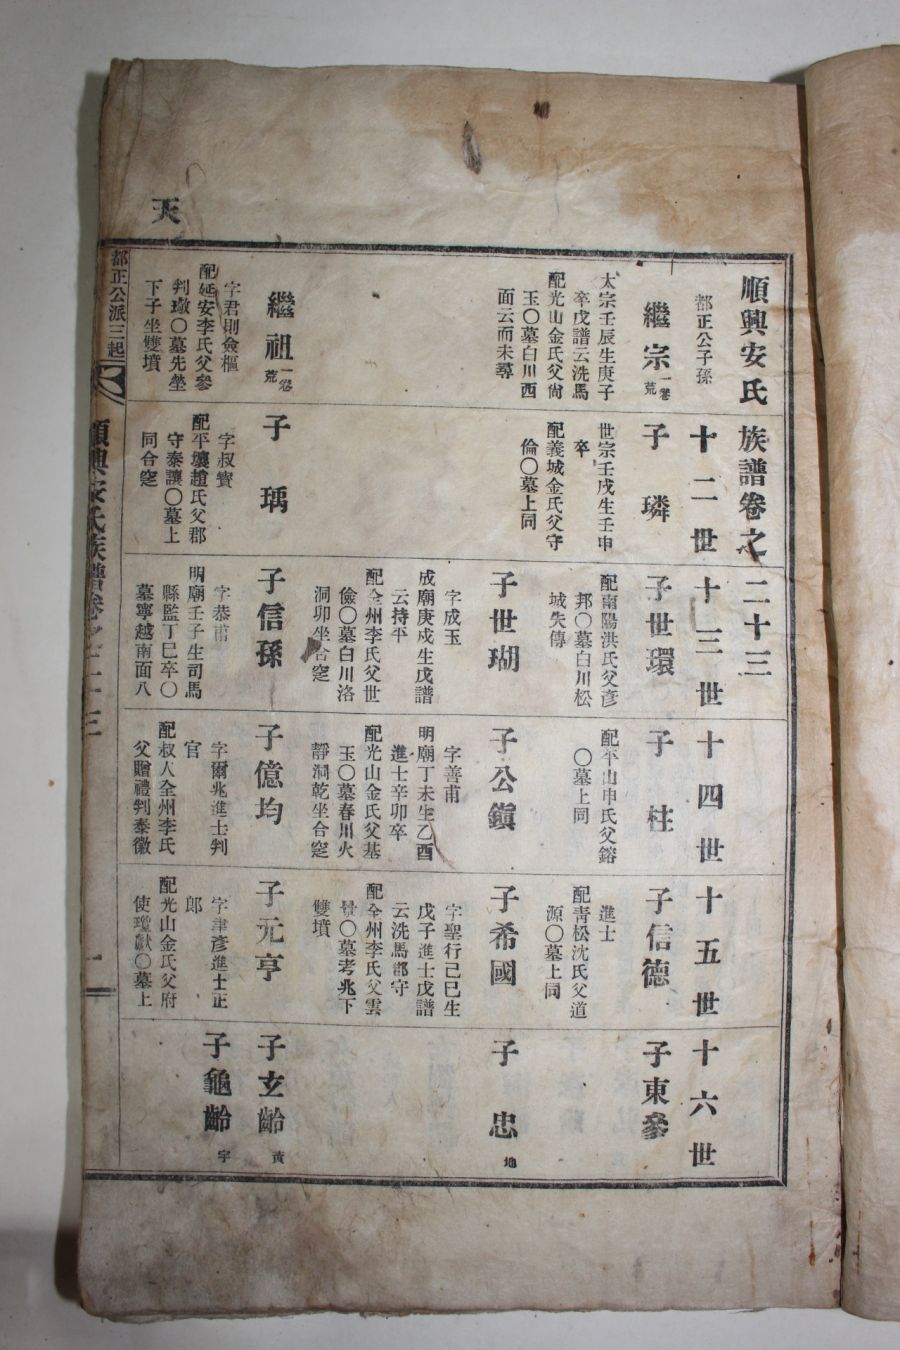 天
順興安氏族譜卷之二十三
都正公子孫
十二世
十三世
十四世
十五世
十六世
繼宗
一卷
荒
太宗壬辰生庚子
卒戊譜云洗馬
配光山金氏父尙
玉〇墓白川西
面云而未尋
子璘
世宗壬戌生壬申
卒
配義城金氏父守
倫〇墓上同
子世環
配南陽洪氏父彥
邦〇墓白川松
城失傳
子柱
配平山申氏父鎔
〇墓上同
子信德
進士
配靑松沈氏父道
源〇墓上同
子東參
子世瑚
字成玉
成廟庚戌生戊譜
云持平
配全州李氏父世
儉〇墓白川洛
洞卯坐合窆
子公鎭
字善甫
明廟丁未生乙酉
進士辛卯卒
配光山金氏父基
玉〇墓春川火
靜洞乾坐合窆
子希國
字聖行己巳生
戊子進士戊譜
云洗馬都守
配全州李氏父雲
〇墓考兆下
雙墳
子忠
地
繼祖
一卷
荒
字君則僉樞
配延安李氏父參
判璥〇墓先塋
下子坐雙墳
子瑀
字叔實
配平壤趙氏父郡
守泰讓〇墓上
同合窆
子信孫
字恭甫
明廟壬子生司馬
縣監丁巳卒〇
墓寧越南面八
子億均
字爾兆進士判
官
配叔人全州李氏
父贈禮判泰徽
子元亨
字聿彥進士正
郞
配光山金氏父府
使瓊獻〇墓上
子玄齡
黃
子龜齡
宇
都正公派三起
順興安氏族譜卷之二十三
一